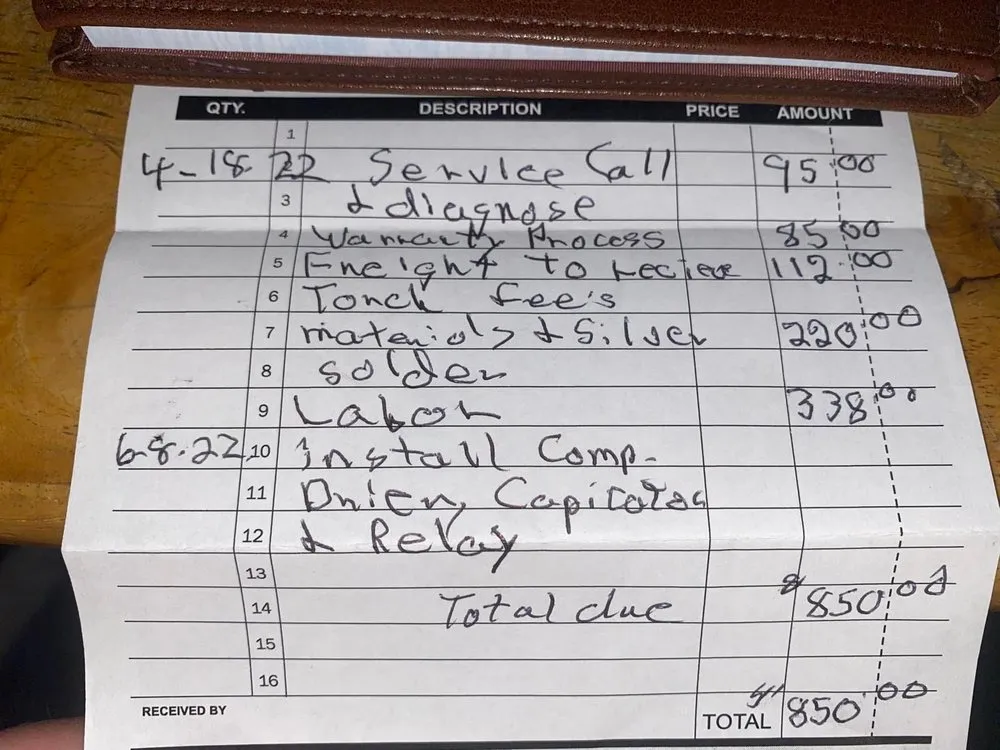 QTY. DESCRIPTION PRICE AMOUNT
1
4-18-22 Service Call 95.00
3 & diagnose
4 Warranty Process 85.00
5 Freight to recieve 112.00
6 Torch fee's
7 materials & Silver 220.00
8 solder
9 Labor 338.00
6-8-22 10 install Comp.
11 Drier, Capicator
12 & Relay
13
14 Total due $850.00
15
16
RECEIVED BY TOTAL $850.00